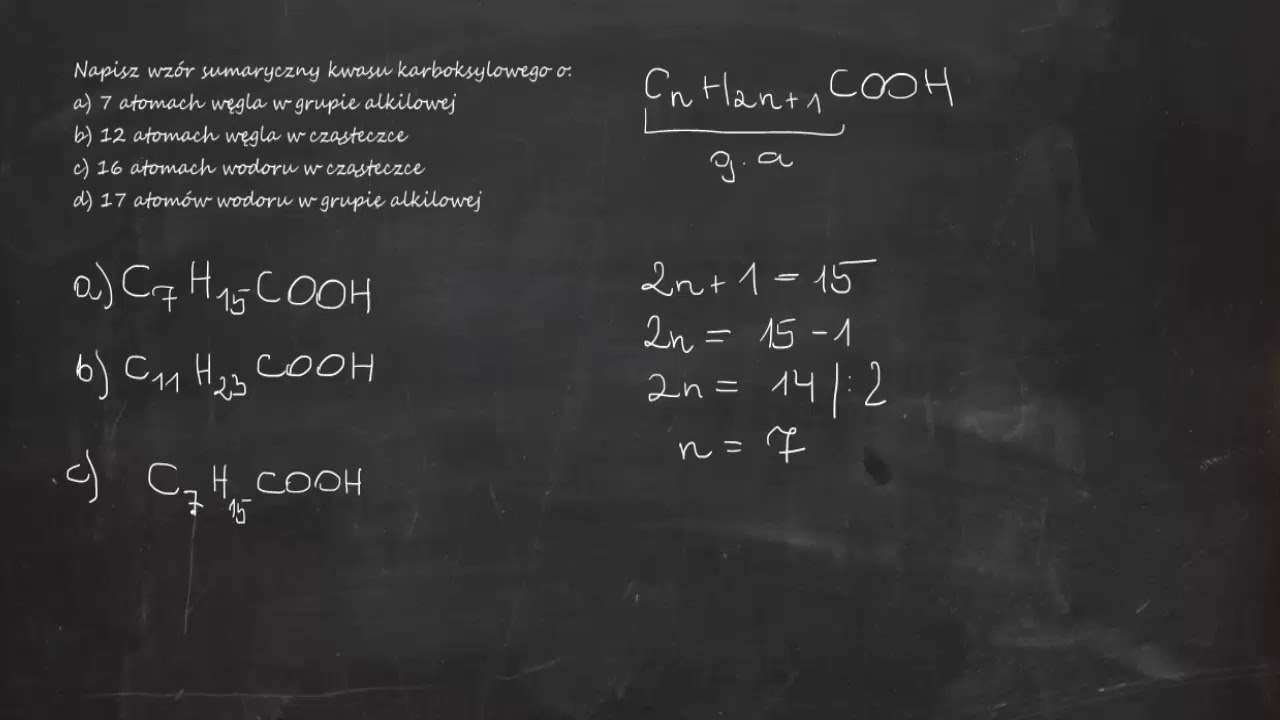 Napisz wzór sumaryczny kwasu karboksylowego o:
a) 7 atomach węgla w grupie alkilowej
b) 12 atomach węgla w cząsteczce
c) 16 atomach wodoru w cząsteczce
d) 17 atomów wodoru w grupie alkilowej
CnH2n+1COOH
g.a
a) C7H15COOH
b) C11H23COOH
c) C7H15COOH
2n+1=15
2n=15-1
2n=14/:2
n=7